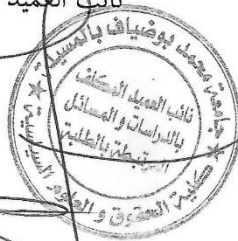 نائب العميد
جامعة محمد بوضياف بالمسيلة
نائب العميد المكلف
بالدراسات و المسائل
المرتبطة بالطلبة
كلية الحقوق و العلوم السياسية